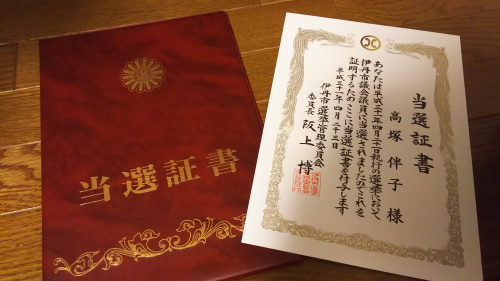 当選証書
当選証書
高塚伴子 様
あなたは平成三十一年四月二十一日執行の選挙において
伊丹市議会議員に当選されましたのでこれを
証明するためここに当選証書を付与します
平成三十一年四月二十三日
伊丹市選挙管理委員会
委員長 阪上 博